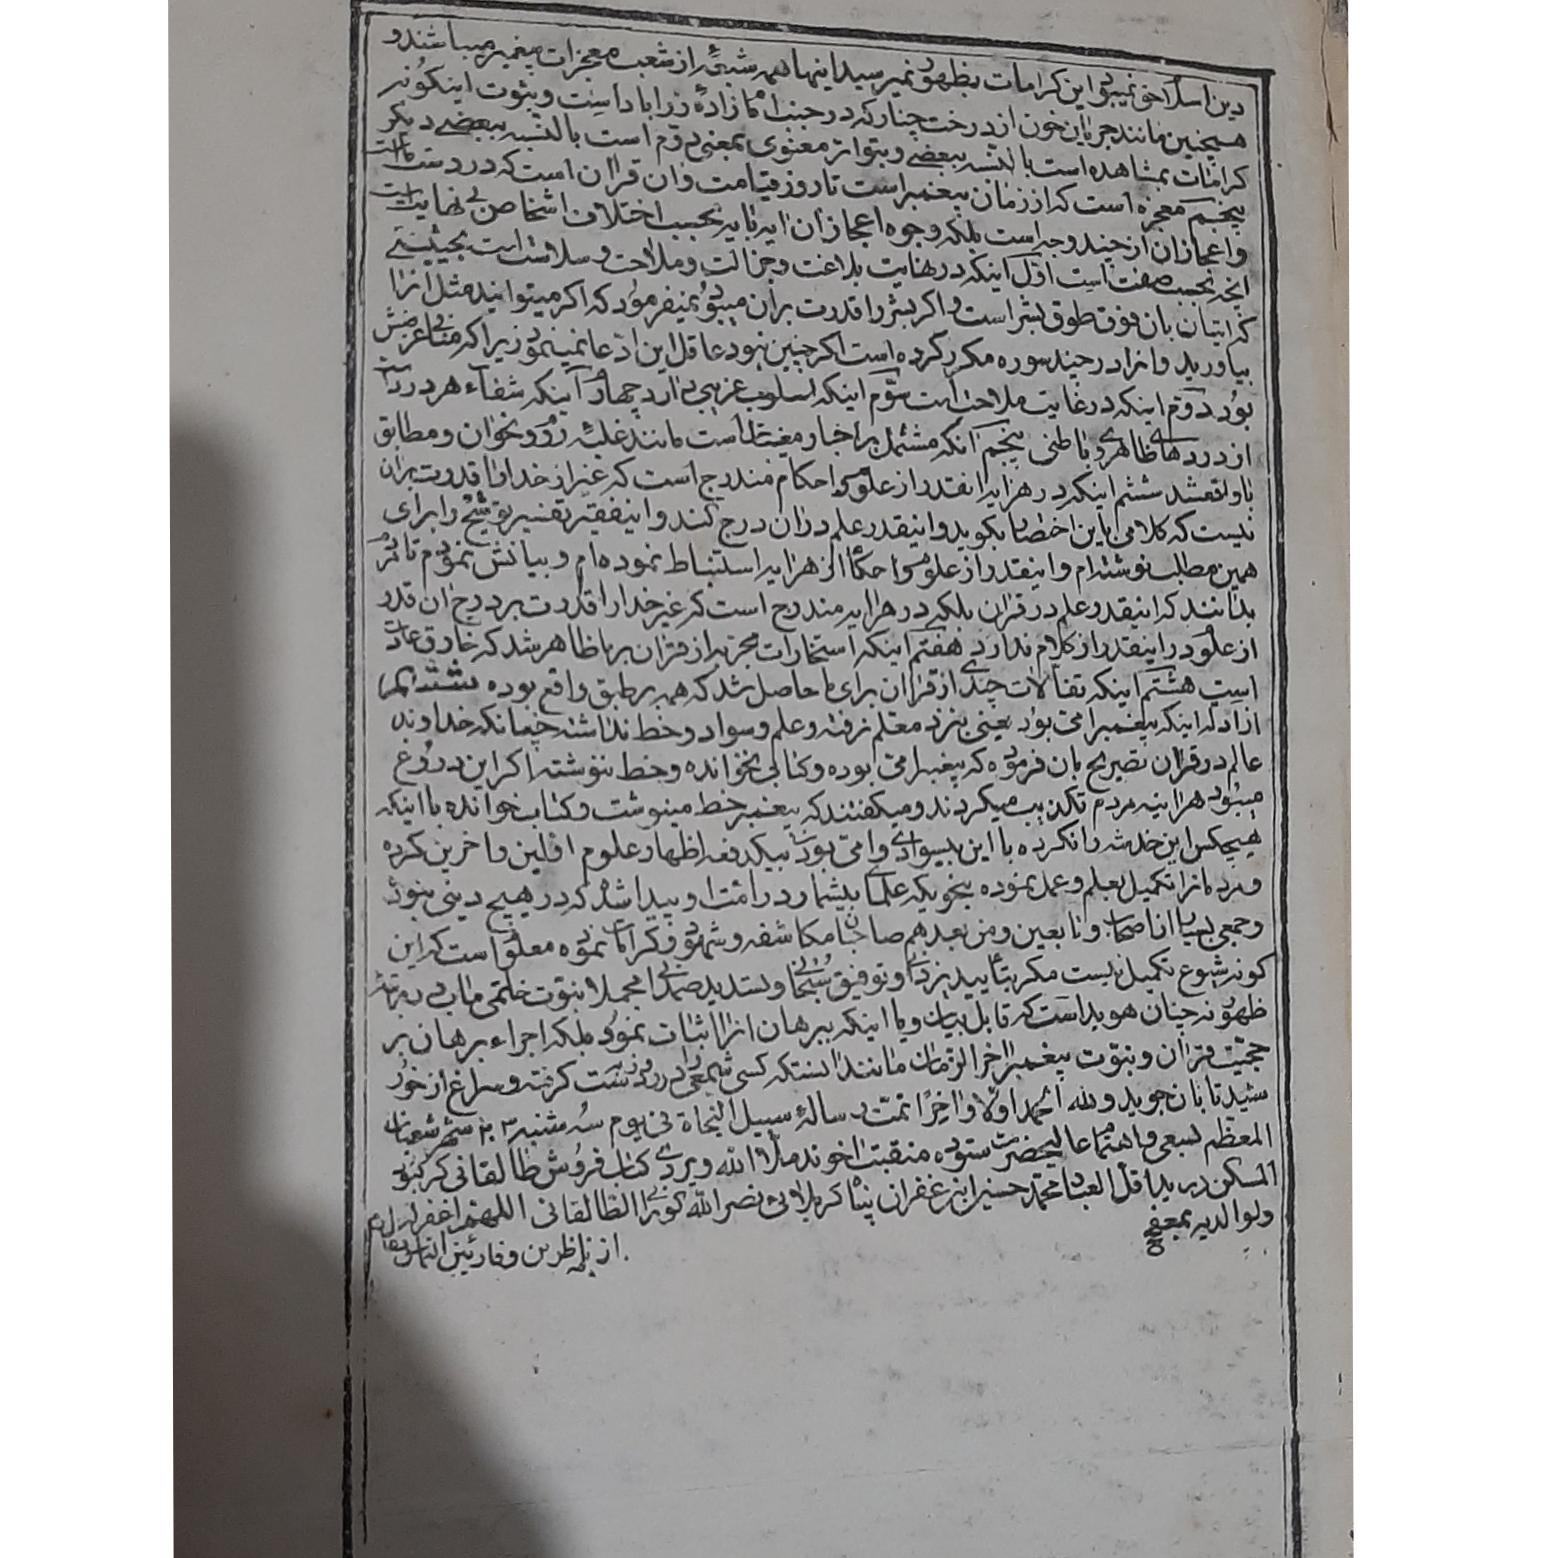 دین اسلام حق نمیبود این کرامات بظهور نمیرسید اینها همه شعبهٔ از شعب معجزات پیغمبر میباشند و
همچنین مانند جریان خون از درخت چنار که در جنب امام زادهٔ زراباد است و ثبوت اینگونه
کرامات بمشاهده است بالنسبه ببعضی و بتواتر معنوی بمعنی دوم است بالنسبه ببعضی دیگر
پنجم معجزه است که از زمان پیغمبر است تا روز قیامت و ان قران است که در دست ماست
و اعجاز ان از چند وجه است بلکه وجوه اعجاز ان ایه بایه بحسب اختلاف اشخاص بی نهایت است
انچه بحسب صفت است اول اینکه در نهایت بلاغت و جزالت و ملاحت و سلاست است بحیثیتی
که اتیان بان فوق طوق بشر است و اگر بشر را قدرت بران میبود نمیفرمود که اگر میتوانید مثل انرا
بیاورید و انرا در چند سوره مکرر کرده است اگر چنین نبود عاقل این ادعا نمینمود زیرا که منافی غرضش
بود دوم اینکه در غایت ملاحت است سوم اینکه اسلوب غریبی دارد چهارم اینکه شفاء هر درد است
از دردهای ظاهری و باطنی پنجم آنکه مشتمل بر اخبار مغیبات است مانند غلبه روم و نحوان و مطابق
با واقع شد ششم اینکه در هر ایه انقدر از علوم و احکام مندرج است که غیر از خدا را قدرت بران
نیست که کلامی باین اختصار بگوید و اینقدر علم دران درج کند و اینفقیر تفسیر توشیح را برای
همین مطلب نوشته‌ام و اینقدر از علوم و احکام از هر ایه استنباط نموده ام و بیانش نمودم تا مردم
بدانند که اینقدر علم در قران بلکه در هر ایه مندرج است که غیر خدا را قدرت بر درج ان قدر
از علوم در اینقدر از کلام ندارد هفتم اینکه استخارات مجربه از قران بر ما ظاهر شد که خارق عادت
است هشتم اینکه تفألات چندی از قران برای ما حاصل شد که همه بر طبق واقع بوده ششم
از ادله اینکه پیغمبر امی بود یعنی بنزد معلم نرفته و علم و سواد و خط نداشته چنانکه خداوند
عالم در قران تصریح بان فرموده که پیغمبر امی بوده و کتابی نخوانده و خط ننوشته اگر این دروغ
میبود هراینه مردم تکذیب میکردند و میگفتند که پیغمبر خط مینوشت و کتاب خوانده با اینکه
هیچکس این خدشه را نکرده با این بیسوادی و امی بودن بیکدفعه اظهار علوم اولین و اخرین کرده
و مردمانرا تکمیل بعلم و عمل نموده بنحویکه علمای بیشمار در امت او پیدا شد که در هیچ دینی نبود
و جمعی بسیار از اصحاب و تابعین و من بعدهم صاحبان مکاشفه و شهود و کرامات نموده معلوم است که این
گونه شیوع تکمیل نیست مگر بتأیید یزدانی و توفیق سبحانی و تسدید صمدانی مجملا نبوت ختمی ماب بی
ظهور نه چنان هویداست که قابل بیان و یا اینکه ببرهان انرا اثبات نمود بلکه اجراء برهان بر
حجیت قران و نبوت پیغمبر اخر الزمان مانند انستکه کسی شمعی را در روز بدست گرفته و سراغ از خور
شید تابان جوید و لله الحمد اولا و اخرا تمت رسالهٔ سبیل النجاة فی یوم سه شنبه ۲۳ شهر شعبان
المعظم بسعی و اهتمام عالیحضرت ستوده منقبت اخوند ملا الله ویردی کتاب فروش طالقانی کرکبود
المسکن در ید اقل العباد محمد حسین ابن غفران پناه کربلائی نصر الله الطالقانی اللهم اغفر له
و لوالدیه بمحمد
از ناظرین و قارئین التماس دعا